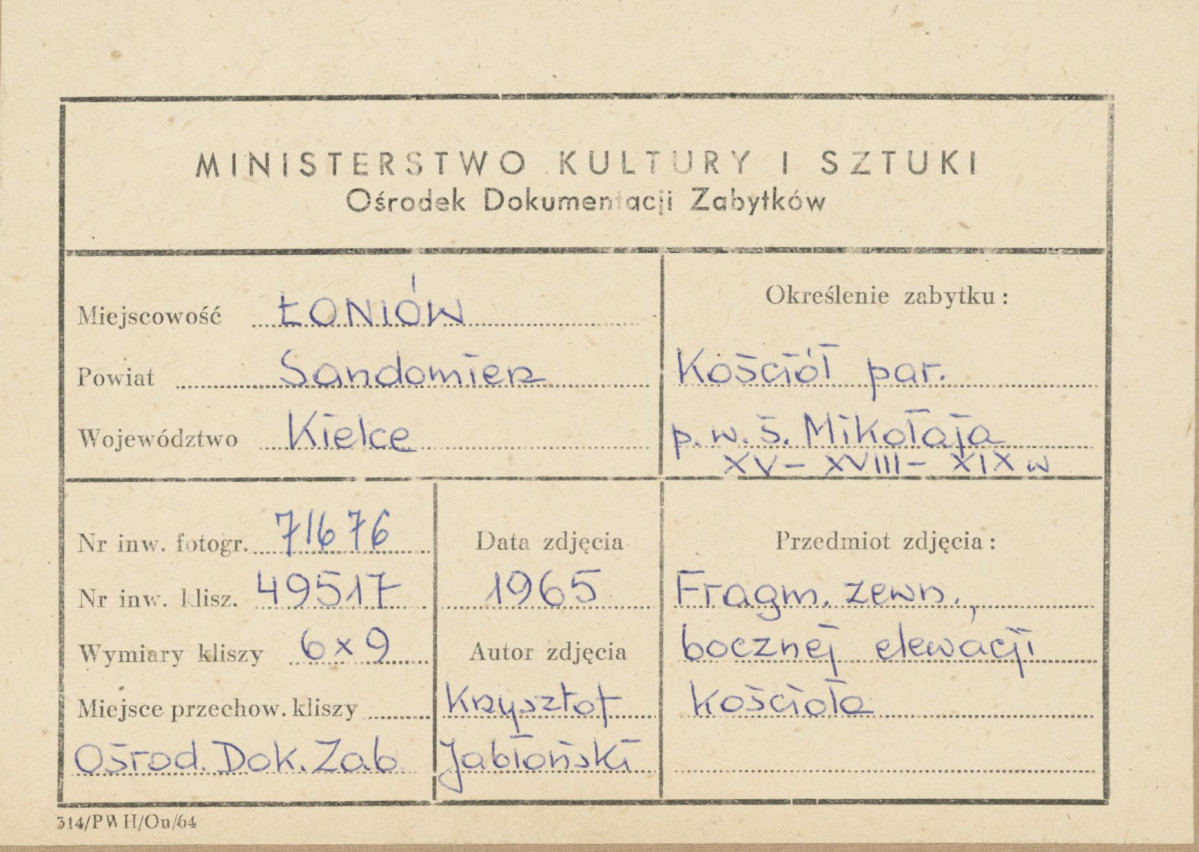 MINISTERSTWO KULTURY I SZTUKI
Ośrodek Dokumentacji Zabytków
Miejscowość ŁONIÓW
Powiat Sandomierz
Województwo Kielce
Określenie zabytku:
Kościół par.
p.w. ś. Mikołaja
XV – XVIII – XIX w
Nr inw. fotogr. 71676
Nr inw. klisz. 49517
Wymiary kliszy 6×9
Miejsce przechow. kliszy
Ośrod. Dok. Zab.
Data zdjęcia
1965
Autor zdjęcia
Krzysztof
Jabłoński
Przedmiot zdjęcia:
Fragm. zewn.,
bocznej elewacji
kościoła
314/PWH/On/64